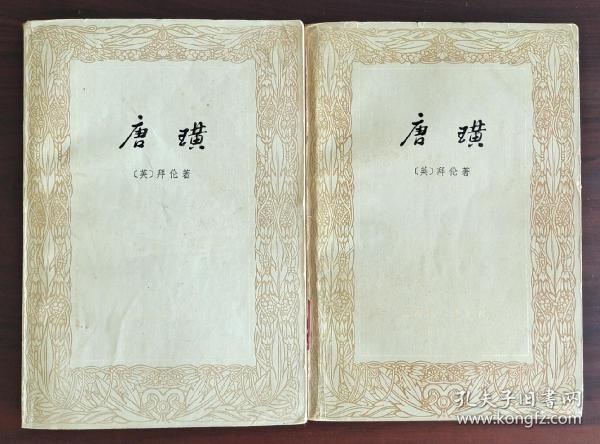 唐璜
〔英〕拜伦著
唐璜
〔英〕拜伦著
孔夫子旧书网
www.kongfz.com